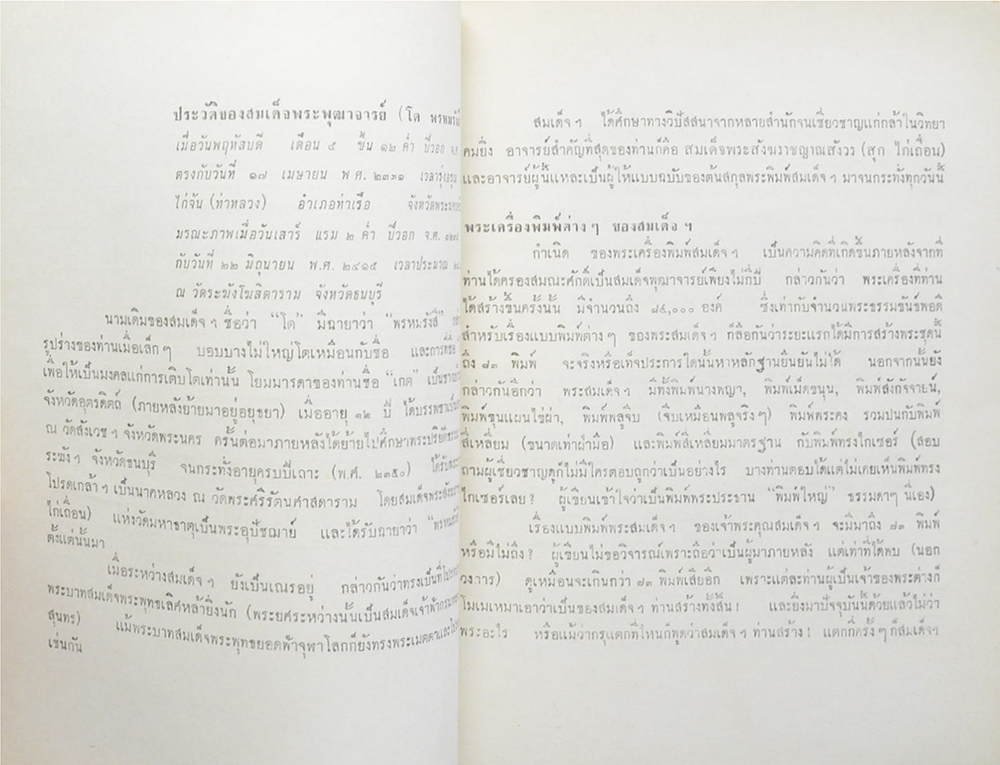 ประวัติของสมเด็จพระพุฒาจารย์ (โต พรหมรังสี
เมื่อวันพฤหัสบดี เดือน ๕ ขึ้น ๑๒ ค่ำ ปีวอก จ.ศ.
ตรงกับวันที่ ๑๗ เมษายน พ.ศ. ๒๓๓๑ เวลารุ่งอรุณ
ไก่จัน (ท่าหลวง) อำเภอท่าเรือ จังหวัดพระนคร
มรณะภาพเมื่อวันเสาร์ แรม ๒ ค่ำ ปีวอก จ.ศ. ๑๒๓
กับวันที่ ๒๒ มิถุนายน พ.ศ. ๒๔๑๕ เวลาประมาณ
ณ วัดระฆังโฆสิตาราม จังหวัดธนบุรี
นามเดิมของสมเด็จฯ ชื่อว่า “โต” มีฉายาว่า “พรหมรังสี”
รูปร่างของท่านเมื่อเล็กๆ บอบบางไม่ใหญ่โตเหมือนกับชื่อ และการที่ชื่อ
เพื่อให้เป็นมงคลแก่การเติบโตเท่านั้น โยมมารดาของท่านชื่อ “เกต” เป็นชาว
จังหวัดอุตรดิตถ์ (ภายหลังย้ายมาอยู่อยุธยา) เมื่ออายุ ๑๒ ปี ได้บรรพชาเป็น
ณ วัดสังเวชฯ จังหวัดพระนคร ครั้นต่อมาภายหลังได้ย้ายไปศึกษาพระปริยัติธรรม
ระฆังฯ จังหวัดธนบุรี จนกระทั่งอายุครบปีเถาะ (พ.ศ. ๒๓๕๐) ได้รับพระ
โปรดเกล้าฯ เป็นนาคหลวง ณ วัดพระศรีรัตนศาสดาราม โดยสมเด็จพระสังฆราช
ไก่เถื่อน) แห่งวัดมหาธาตุเป็นพระอุปัชฌาย์ และได้รับฉายาว่า “พรหมรังสี
ตั้งแต่นั้นมา
เมื่อระหว่างสมเด็จฯ ยังเป็นเณรอยู่ กล่าวกันว่าทรงเป็นที่โปรด
พระบาทสมเด็จพระพุทธเลิศหล้ายิ่งนัก (พระยศระหว่างนั้นเป็นสมเด็จเจ้าฟ้ากรม
สุนทร) แม้พระบาทสมเด็จพระพุทธยอดฟ้าจุฬาโลกก็ยังทรงพระเมตตาและ
เช่นกัน
สมเด็จฯ ได้ศึกษาทางวิปัสสนาจากหลายสำนักจนเชี่ยวชาญแก่กล้าในวิทยา
คมยิ่ง อาจารย์สำคัญที่สุดของท่านก็คือ สมเด็จพระสังฆราชญาณสังวร (สุก ไก่เถื่อน)
และอาจารย์ผู้นี้แหละเป็นผู้ให้แบบฉบับของต้นสกุลพระพิมพ์สมเด็จฯ มาจนกระทั่งทุกวันนี้
พระเครื่องพิมพ์ต่างๆ ของสมเด็จฯ
กำเนิด ของพระเครื่องพิมพ์สมเด็จฯ เป็นความคิดที่เกิดขึ้นภายหลังจากที่
ท่านได้ครองสมณะศักดิ์เป็นสมเด็จพุฒาจารย์เพียงไม่กี่ปี กล่าวกันว่า พระเครื่องที่ท่าน
ได้สร้างขึ้นครั้งนั้น มีจำนวนถึง ๘๔,๐๐๐ องค์ ซึ่งเท่ากับจำนวนพระธรรมขันธ์พอดี
สำหรับเรื่องแบบพิมพ์ต่างๆ ของพระสมเด็จฯ ก็ลือกันว่าระยะแรกได้มีการสร้างพระชุดนี้
ถึง ๘๓ พิมพ์ จะจริงหรือเท็จประการใดนั้นหาหลักฐานยืนยันไม่ได้ นอกจากนั้นยัง
กล่าวกันอีกว่า พระสมเด็จฯ มีทั้งพิมพ์นางพญา, พิมพ์เม็ดขนุน, พิมพ์สังกัจจายน์,
พิมพ์ขุนแผนไข่ผ่า, พิมพ์พลูจีบ (จีบเหมือนพลูจริงๆ) พิมพ์พระคง รวมปนกับพิมพ์
สี่เหลี่ยม (ขนาดเท่าฝ่ามือ) และพิมพ์สี่เหลี่ยมมาตรฐาน กับพิมพ์ทรงไกเซอร์ (สอบ
ถามผู้เชี่ยวชาญดูก็ไม่มีใครตอบถูกว่าเป็นอย่างไร บางท่านตอบได้แต่ไม่เคยเห็นพิมพ์ทรง
ไกเซอร์เลย? ผู้เขียนเข้าใจว่าเป็นพิมพ์พระประธาน “พิมพ์ใหญ่” ธรรมดาๆ นี่เอง)
เรื่องแบบพิมพ์พระสมเด็จฯ ของเจ้าพระคุณสมเด็จฯ จะมีมาถึง ๘๓ พิมพ์
หรือมีไม่ถึง? ผู้เขียนไม่ขอวิจารณ์เพราะถือว่าเป็นผู้มาภายหลัง แต่เท่าที่ได้พบ (นอก
วงการ) ดูเหมือนจะเกินกว่า ๘๓ พิมพ์เสียอีก เพราะแต่ละท่านผู้เป็นเจ้าของพระต่างก็
โมเมเหมาเอาว่าเป็นของสมเด็จฯ ท่านสร้างทั้งสิ้น! และยิ่งมาปัจจุบันนี้ด้วยแล้วไม่ว่า
พระอะไร หรือแม้ว่ากรุแตกที่ไหนก็พูดว่าสมเด็จฯ ท่านสร้าง! แตกกี่ครั้งๆ ก็สมเด็จฯ